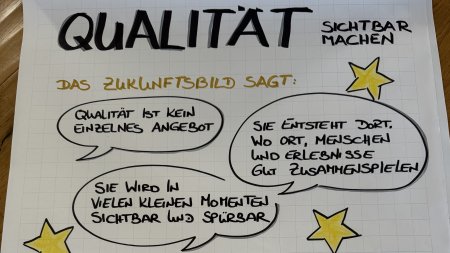 QUALITÄT SICHTBAR
MACHEN
DAS ZUKUNFTSBILD SAGT:
QUALITÄT IST KEIN
EINZELNES ANGEBOT
SIE ENTSTEHT DORT.
WO ORT, MENSCHEN
UND ERLEBNISSE
GUT ZUSAMMENSPIELEN
SIE WIRD IN
VIELEN KLEINEN MOMENTEN
SICHTBAR UND SPÜRBAR